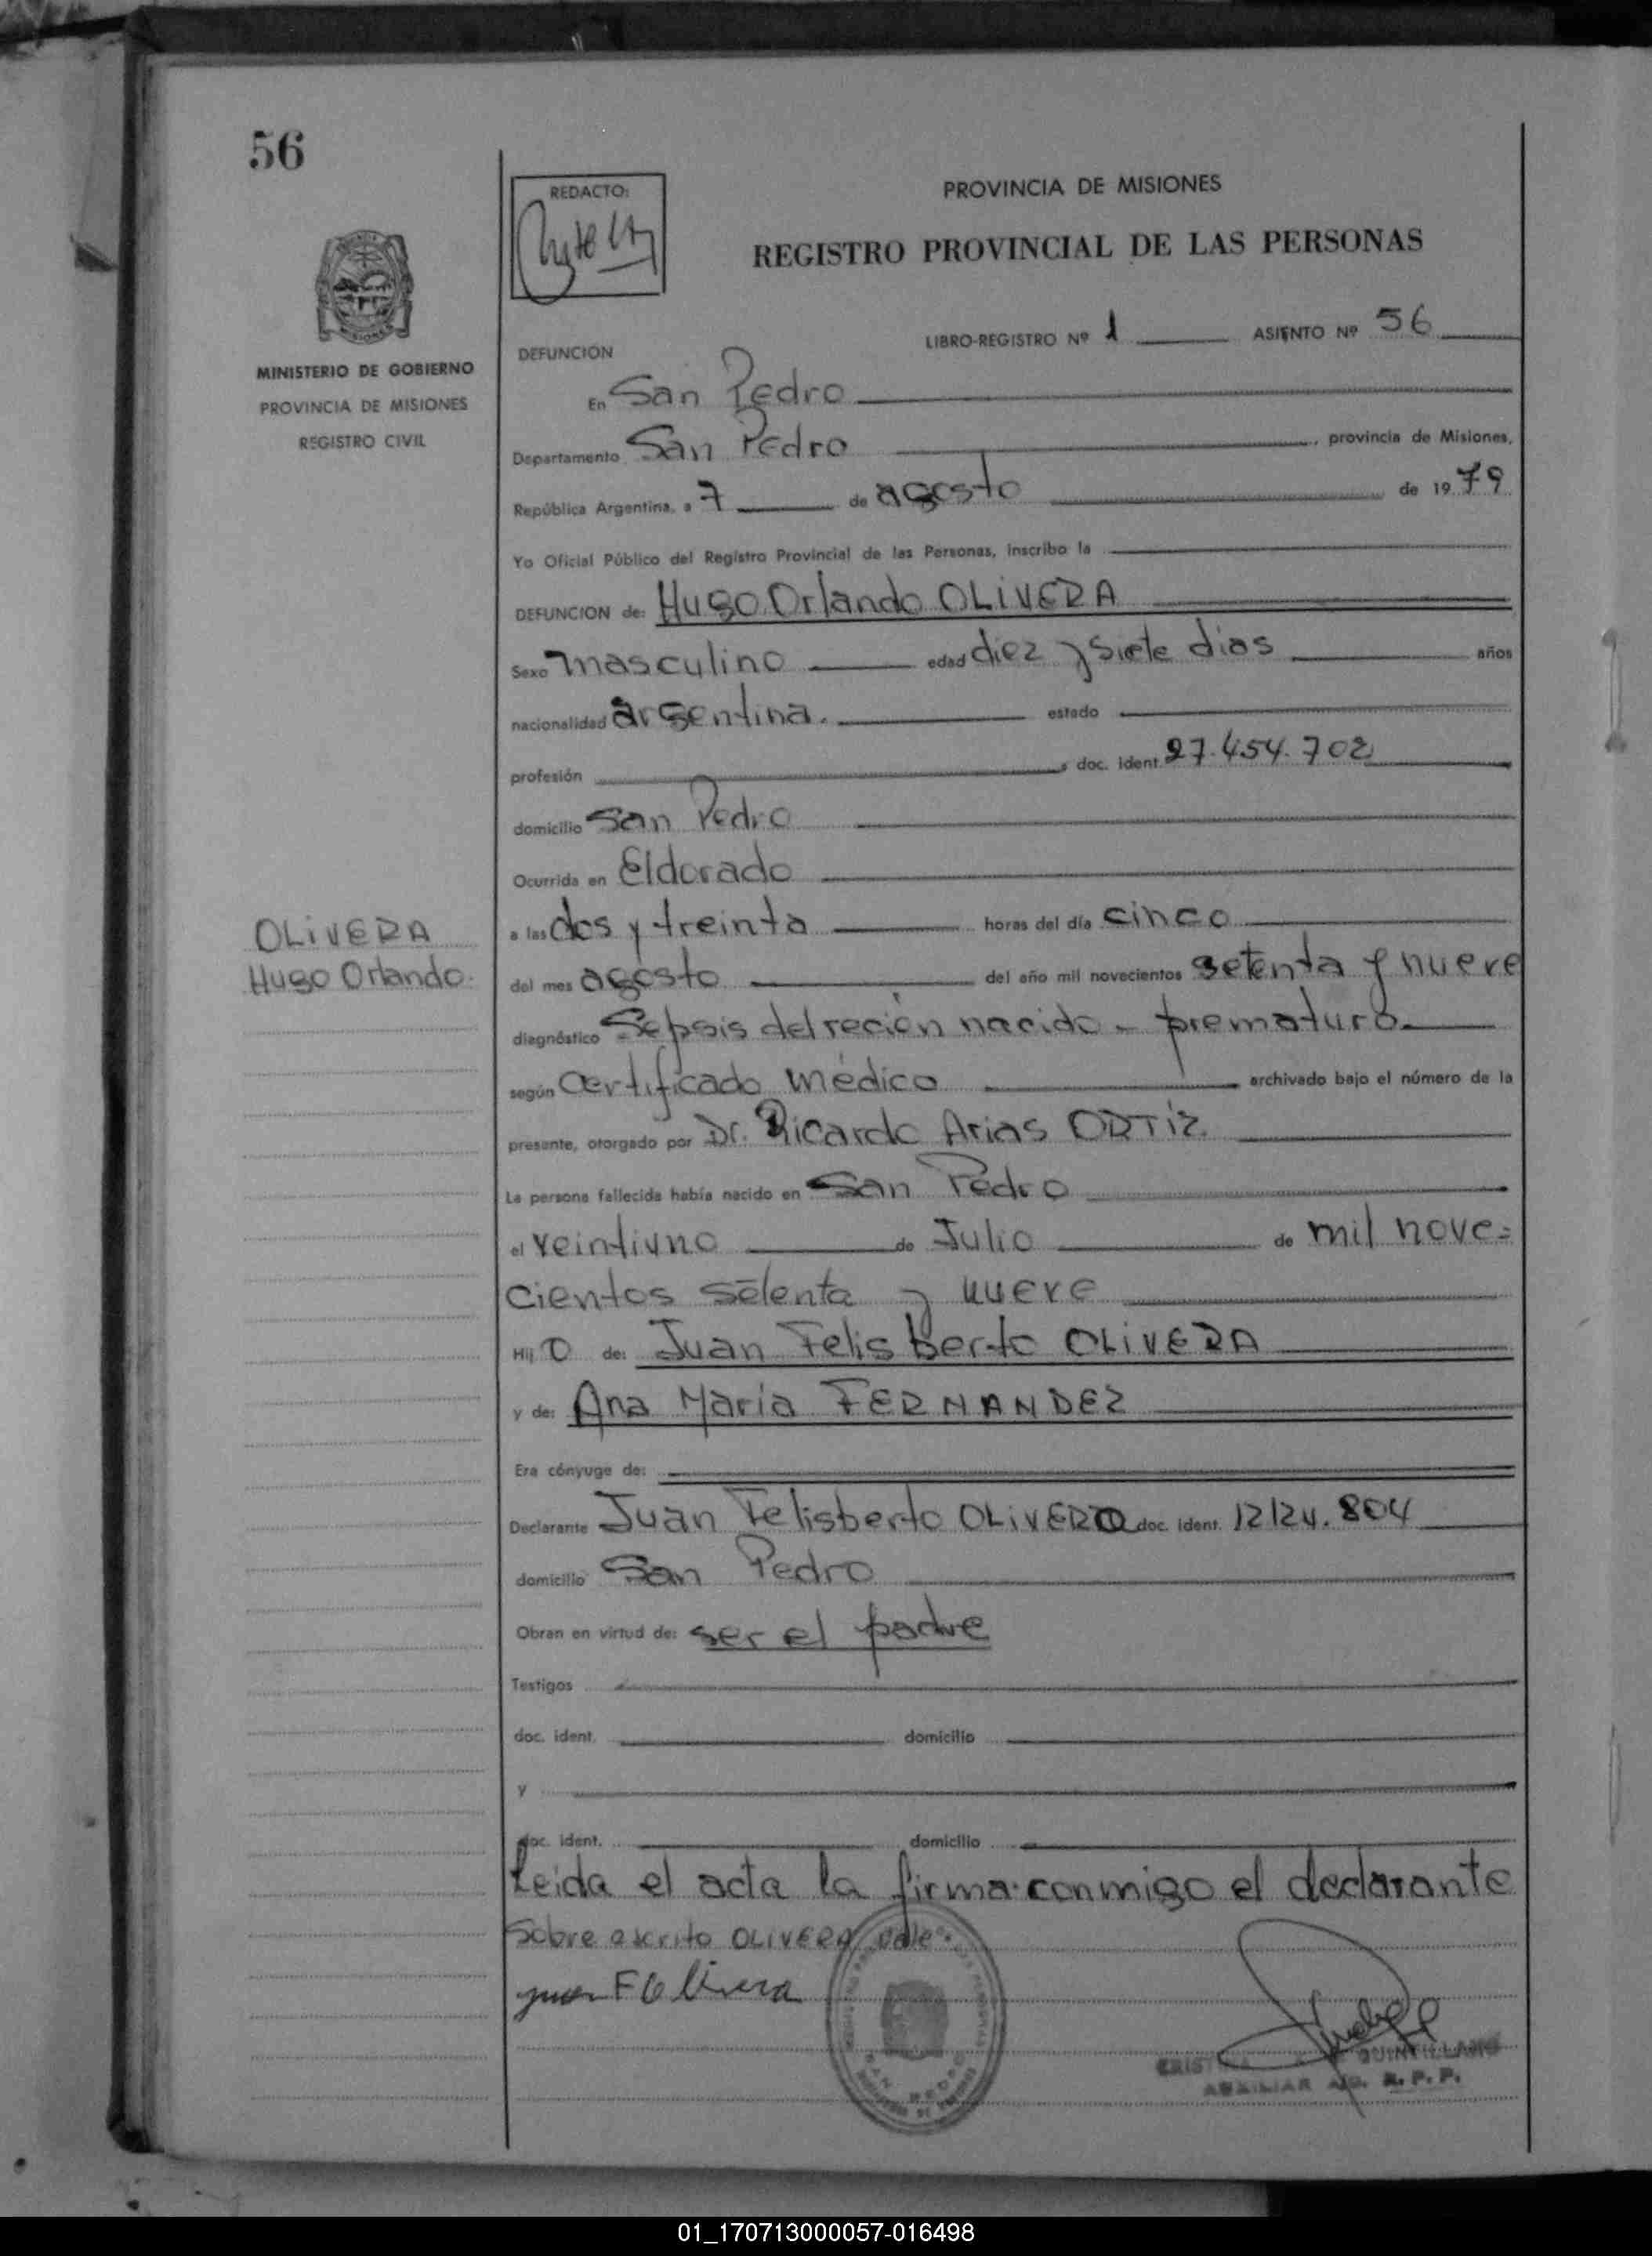 56
REDACTO:
PROVINCIA DE MISIONES
REGISTRO PROVINCIAL DE LAS PERSONAS
MINISTERIO DE GOBIERNO
PROVINCIA DE MISIONES
REGISTRO CIVIL
LIBRO-REGISTRO Nº 1 ASIENTO Nº 56
DEFUNCION
En San Pedro
Departamento San Pedro, provincia de Misiones,
República Argentina, a 7 de agosto de 1979
Yo Oficial Público del Registro Provincial de las Personas, inscribo la
DEFUNCION de: Hugo Orlando OLIVERA
Sexo masculino edad diez y siete dias años
nacionalidad argentina. estado
profesión, doc. ident. 27.454.702
domicilio San Pedro
Ocurrida en Eldorado
OLIVERA
Hugo Orlando.
a las dos y treinta horas del día cinco
del mes agosto del año mil novecientos setenta y nueve
diagnóstico Sepsis del recién nacido - prematuro.
según Certificado médico archivado bajo el número de la
presente, otorgado por Dr. Ricardo Arias ORTIZ.
La persona fallecida había nacido en San Pedro
el veintiuno de Julio de mil nove=
cientos setenta y nueve
Hij o de: Juan Felisberto OLIVERA
y de: Ana Maria FERNANDEZ
Era cónyuge de:
Declarante Juan Felisberto OLIVERA doc. ident. 12124.804
domicilio San Pedro
Obran en virtud de: ser el padre
Testigos
doc. ident. domicilio
y
doc. ident. domicilio
Leida el acta la firma conmigo el declarante
Sobre escrito OLIVERA vale.
Juan F Olivera
SAN PEDRO
QUINTILLANO
AUXILIAR R. P. P.
01_170713000057-016498